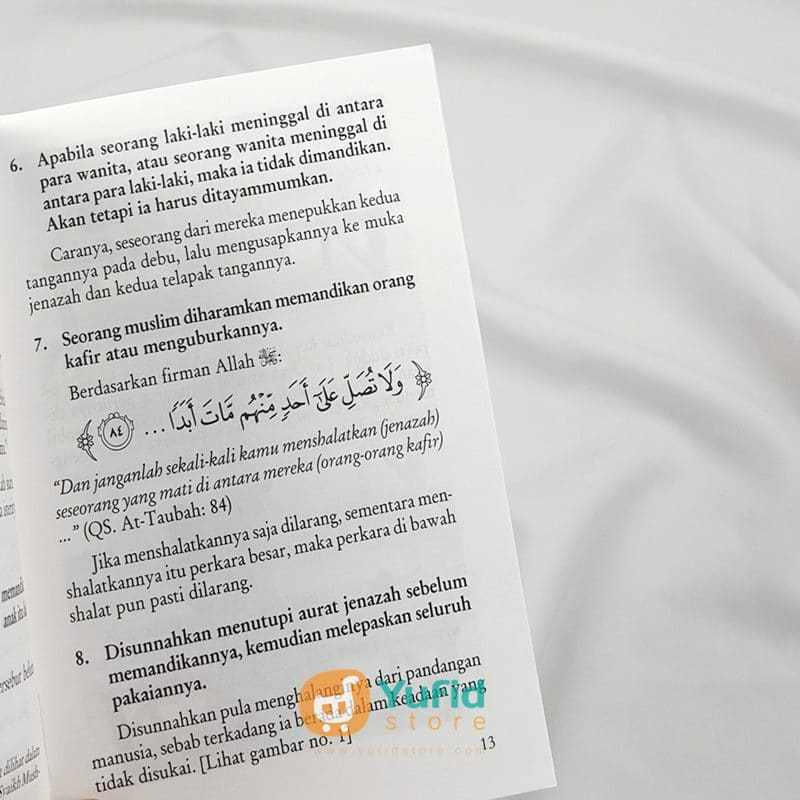 6. Apabila seorang laki-laki meninggal di antara
para wanita, atau seorang wanita meninggal di
antara para laki-laki, maka ia tidak dimandikan.
Akan tetapi ia harus ditayammumkan.
Caranya, seseorang dari mereka menepukkan kedua
tangannya pada debu, lalu mengusapkannya ke muka
jenazah dan kedua telapak tangannya.
7. Seorang muslim diharamkan memandikan orang
kafir atau menguburkannya.
Berdasarkan firman Allah ﷻ:
﴿ وَلَا تُصَلِّ عَلَىٰٓ أَحَدٍ مِّنْهُم مَّاتَ أَبَدًا ... ٨٤ ﴾
“Dan janganlah sekali-kali kamu menshalatkan (jenazah)
seseorang yang mati di antara mereka (orang-orang kafir)
...” (QS. At-Taubah: 84)
Jika menshalatkannya saja dilarang, sementara men-
shalatkannya itu perkara besar, maka perkara di bawah
shalat pun pasti dilarang.
8. Disunnahkan menutupi aurat jenazah sebelum
memandikannya, kemudian melepaskan seluruh
pakaiannya.
Disunnahkan pula menghalanginya dari pandangan
manusia, sebab terkadang ia berada dalam keadaan yang
tidak disukai. [Lihat gambar no. 1]
13
Yufid
store
www.yufidstore.com